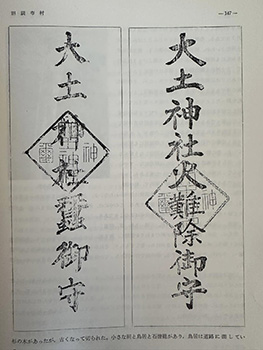 —347—
大土神社火難除御守
大土神社蠶御守
の木があったが、古くなって切られた。小さな祠と鳥居と石燈籠があり、鳥居は道路に面してい